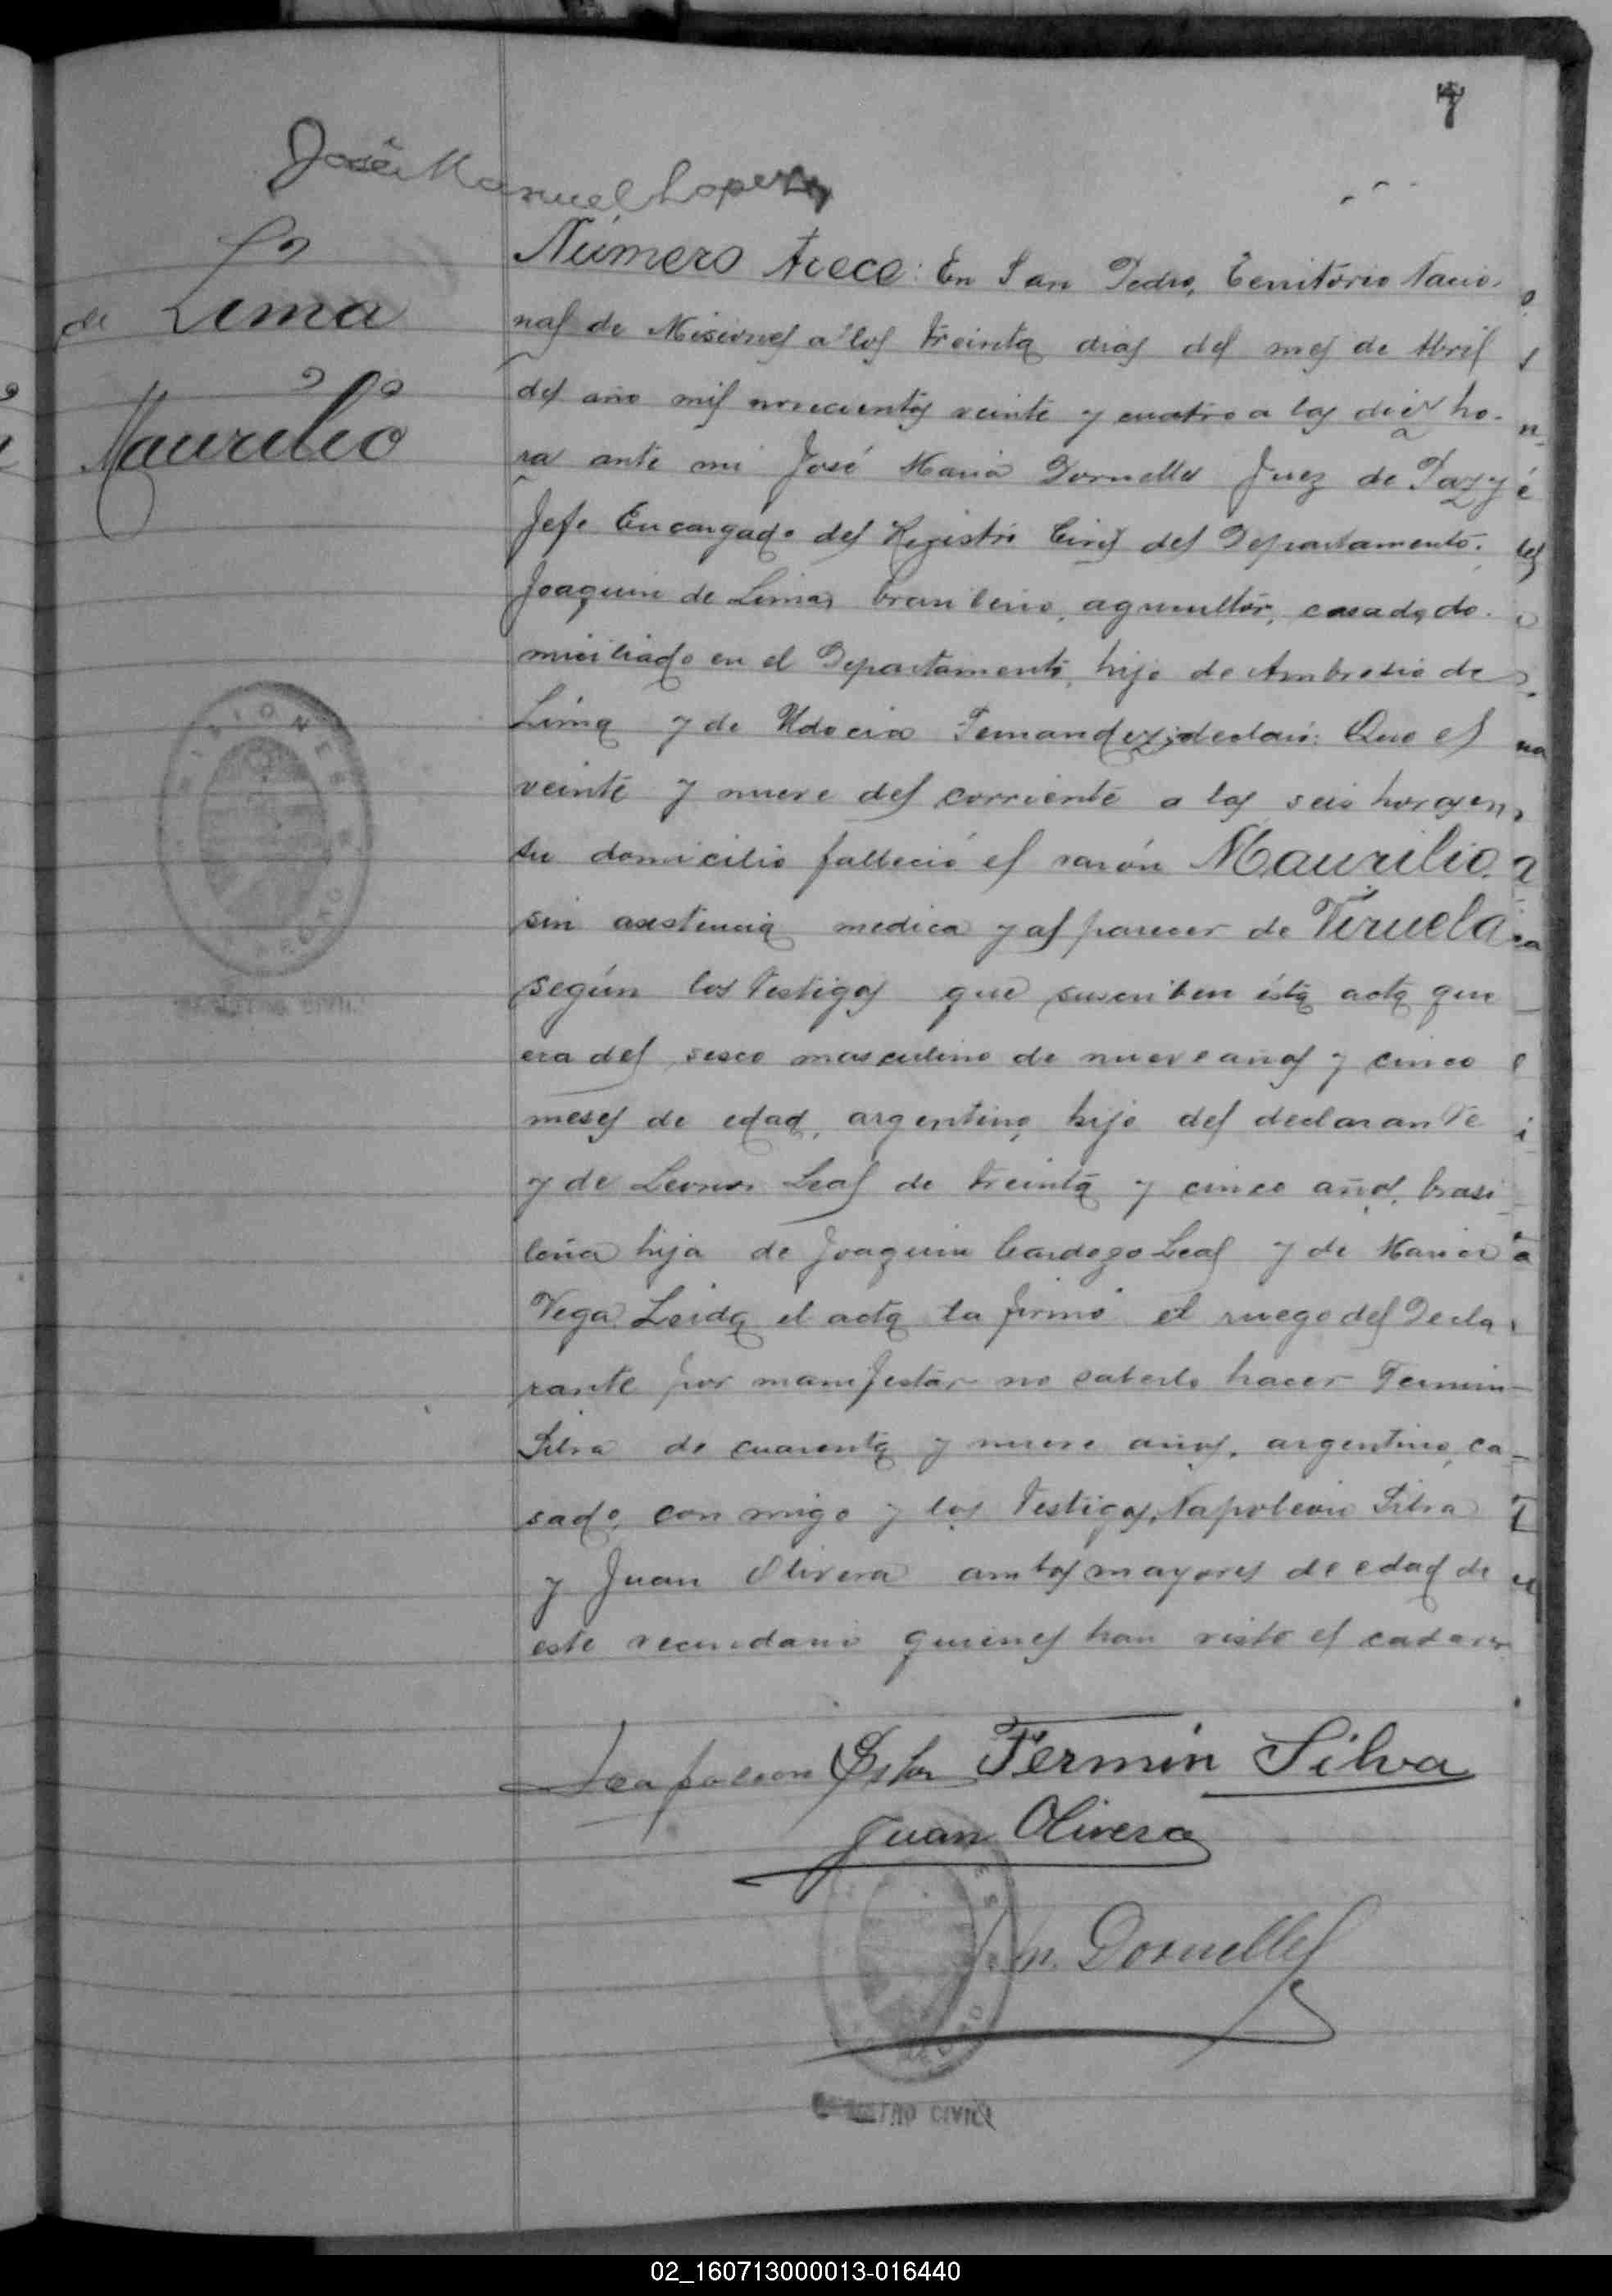 7
José Manuel Lopez
de Lima
Maurilio
Número trece: En San Pedro, Territorio Nacio-
nal de Misiones a los treinta dias del mes de Abril
del año mil novecientos veinte y cuatro a las diez ho-
ra ante mi José Maria Dornelles Juez de Paz y
Jefe Encargado del Registro Civil del Departamento.
Joaquin de Lima, brasilero, agricultor, casado, do-
miciliado en el Departamento, hijo de Ambrosio de
Lima y de Udocia Fernandez, declaró: Que el
veinte y nueve del corriente a las seis horas en
su domicilio falleció el varón Maurilio
sin asistencia medica y al parecer de Viruela
según los testigos que suscriben ésta acta que
era del sexo masculino de nueve años y cinco
meses de edad, argentino, hijo del declarante
y de Leonor Leal de treinta y cinco años, brasi
leña hija de Joaquin Cardozo Leal y de Maria
Vega. Leida el acta la firmó el ruego del Decla
rante por manifestar no saberlo hacer Fermin
Silva de cuarenta y nueve años, argentino, ca-
sado, con migo y los testigos, Napoleon Silva
y Juan Olivera ambos mayores de edad de
este vecindario quienes han visto el cadaver
Napoleon Silva Fermín Silva
Juan Olivera
J. M. Dornelles
MISIONES
REGISTRO CIVIL
REGISTRO CIVIL
02_160713000013-016440